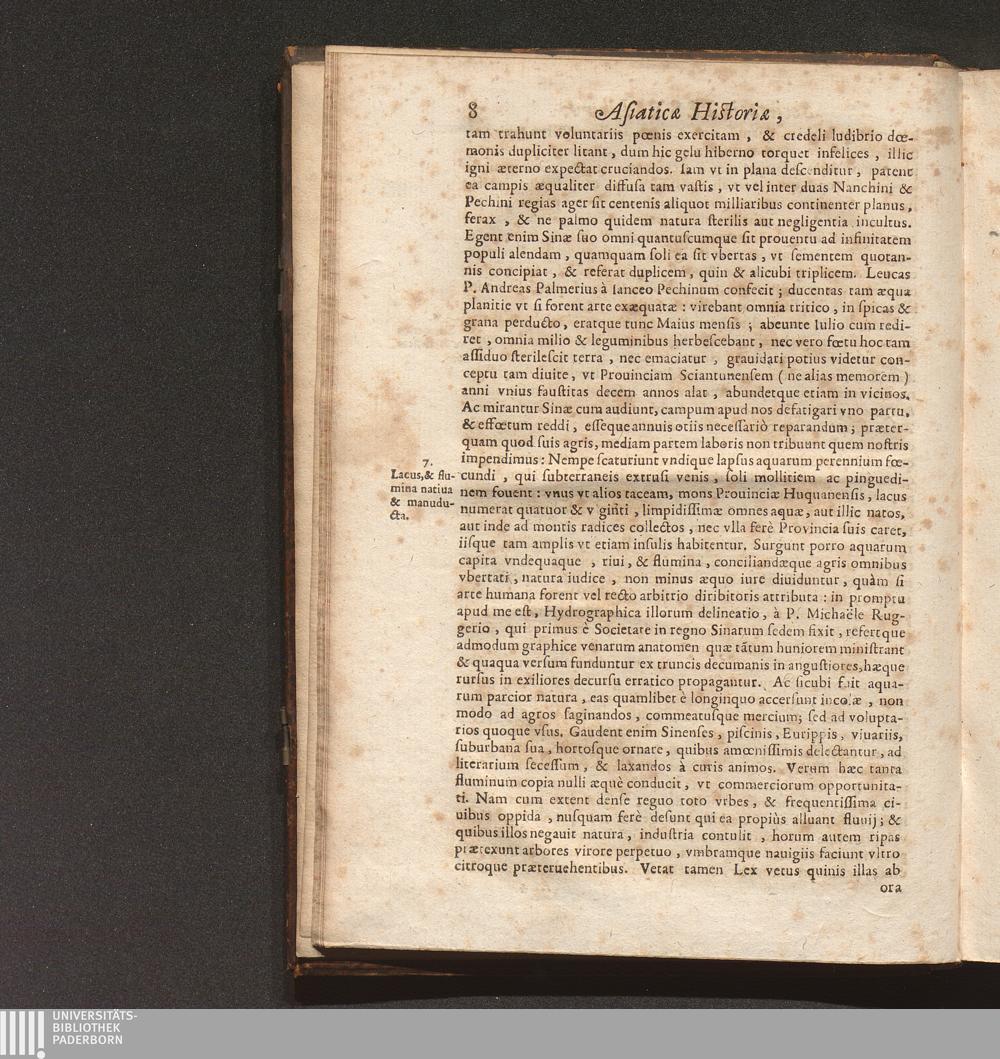 8 Aſiaticæ Hiſtoriæ,
tam trahunt voluntariis pœnis exercitam, & credeli ludibrio dœ-
monis dupliciter litant, dum hic gelu hiberno torquet infelices, illic
igni æterno expectat cruciandos. Iam vt in plana deſcenditur, patent
ea campis æqualiter diffuſa tam vaſtis, vt vel inter duas Nanchini &
Pechini regias ager ſit centenis aliquot milliaribus continenter planus,
ferax, & ne palmo quidem natura ſterilis aut negligentia incultus.
Egent enim Sinæ ſuo omni quantuſcumque ſit prouentu ad infinitatem
populi alendam, quamquam ſoli ea ſit vbertas, vt ſementem quotan-
nis concipiat, & referat duplicem, quin & alicubi triplicem. Leucas
P. Andreas Palmerius à Ianceo Pechinum confecit; ducentas tam æqua
planitie vt ſi forent arte exæquatæ: virebant omnia tritico, in ſpicas &
grana perducto, eratque tunc Maius menſis; abeunte Iulio cum redi-
ret, omnia milio & leguminibus herbeſcebant, nec vero fœtu hoc tam
aſſiduo ſterileſcit terra, nec emaciatur, grauidari potius videtur con-
ceptu tam diuite, vt Prouinciam Sciantunenſem (ne alias memorem)
anni vnius fauſtitas decem annos alat, abundetque etiam in vicinos.
Ac mirantur Sinæ cum audiunt, campum apud nos defatigari vno partu,
& effœtum reddi, eſſeque annuis otiis neceſſariò reparandum; præter-
quam quod ſuis agris, mediam partem laboris non tribuunt quem noſtris
impendimus: Nempe ſcaturiunt vndique lapſus aquarum perennium fœ-
cundi, qui ſubterraneis extruſi venis, ſoli mollitiem ac pinguedi-
nem fouent: vnus vt alios taceam, mons Prouinciæ Huquanenſis, lacus
numerat quatuor & viginti, limpidiſſimæ omnes aquæ, aut illic natos,
aut inde ad montis radices collectos, nec vlla ferè Provincia ſuis caret,
iiſque tam amplis vt etiam inſulis habitentur. Surgunt porro aquarum
capita vndequaque, riui, & flumina, conciliandæque agris omnibus
vbertati, natura iudice, non minus æquo iure diuiduntur, quàm ſi
arte humana forent vel recto arbitrio diribitoris attributa: in promptu
apud me eſt, Hydrographica illorum delineatio, à P. Michaële Rug-
gerio, qui primus è Societate in regno Sinarum ſedem fixit, refertque
admodum graphice venarum anatomen quæ tātum huniorem miniſtrant
& quaqua verſum funduntur ex truncis decumanis in anguſtiores, hæque
rurſus in exiliores decurſu erratico propagantur. Ac ſicubi fuit aqua-
rum parcior natura, eas quamlibet è longinquo accerſunt incolæ, non
modo ad agros ſaginandos, commeatuſque mercium; ſed ad volupta-
rios quoque vſus. Gaudent enim Sinenſes, piſcinis, Eurippis, viuariis,
ſuburbana ſua, hortoſque ornare, quibus amœniſſimis delectantur, ad
literarium ſeceſſum, & laxandos à curis animos. Verum hæc tanta
fluminum copia nulli æquè conducit, vt commerciorum opportunita-
ti. Nam cum extent denſe reguo toto vrbes, & frequentiſſima ci-
uibus oppida, nuſquam ferè deſunt qui ea propiùs alluant fluuij; &
quibus illos negauit natura, induſtria contulit, horum autem ripas
prætexunt arbores virore perpetuo, vmbramque nauigiis faciunt vltro
citroque præteruehentibus. Vetat tamen Lex vetus quinis illas ab
ora
7.
Lacus, & flu-
mina natiua
& manudu-
cta.
UNIVERSITÄTS-
BIBLIOTHEK
PADERBORN